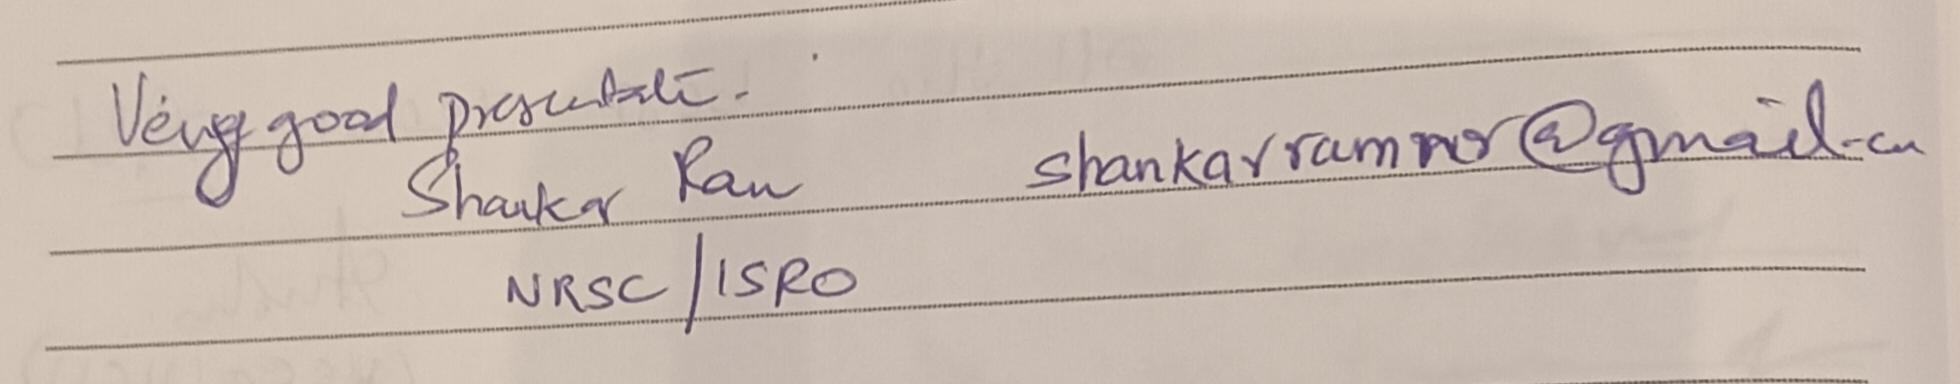 Very good presentati.
Shankar Ram
shankarram@gmail.com
NRSC/ISRO